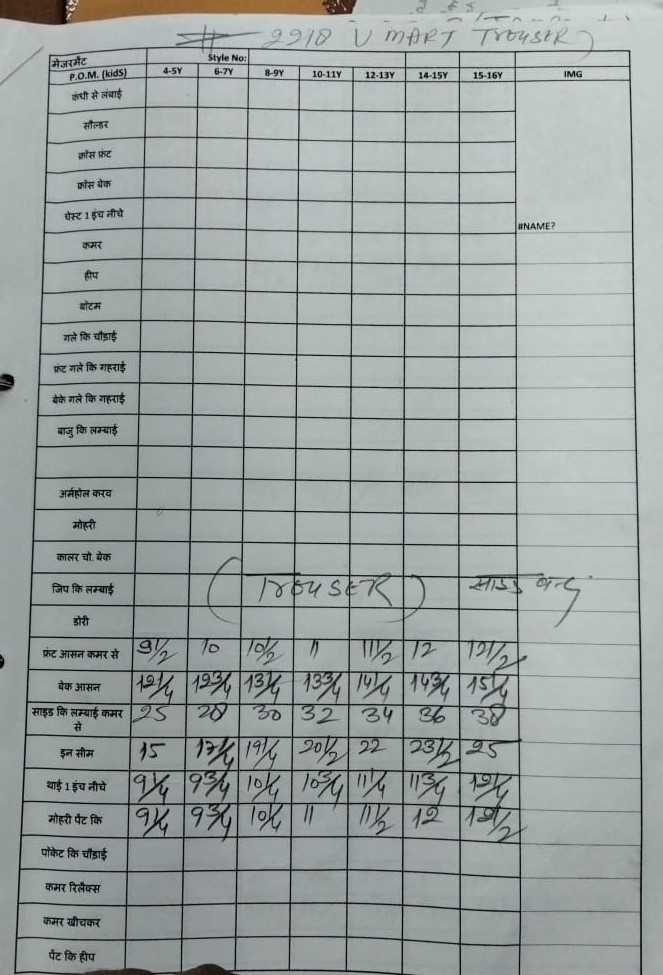 # 2218 V MART TROUSER)
मेजरमेंट Style No:
P.O.M. (kidS) 4-5Y 6-7Y 8-9Y 10-11Y 12-13Y 14-15Y 15-16Y IMG
कंधी से लंबाई
सौल्डर
क्रॉस फ्रंट
क्रॉस बेक
चेस्ट 1 इंच नीचे
#NAME?
कमर
हीप
बॉटम
गले कि चौड़ाई
फ्रंट गले कि गहराई
बेके गले कि गहराई
बाजु कि लम्बाई
अर्महोल करव
मोहरी
कालर चो. बेक
जिप कि लम्बाई (TROUSER) साइड बन्द
डोरी
फ्रंट आसन कमर से 9 1/2 10 10 1/2 11 11 1/2 12 12 1/2
बेक आसन 12 1/4 12 3/4 13 1/4 13 3/4 14 1/4 14 3/4 15 1/4
साइड कि लम्बाई कमर 25 28 30 32 34 36 38
से
इन सीम 15 17 1/4 19 1/4 20 1/2 22 23 1/2 25
थाई 1 इंच नीचे 9 1/4 9 3/4 10 1/4 10 3/4 11 1/4 11 3/4 12 1/4
मोहरी पेंट कि 9 1/4 9 3/4 10 1/4 11 11 1/2 12 12 1/2
पॉकेट कि चौड़ाई
कमर रिलैक्स
कमर खीचकर
पेंट कि हीप